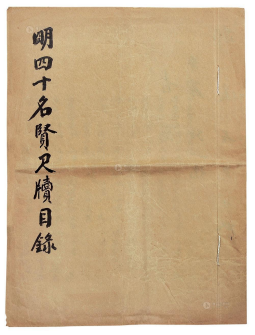 明四十名賢尺牘目錄